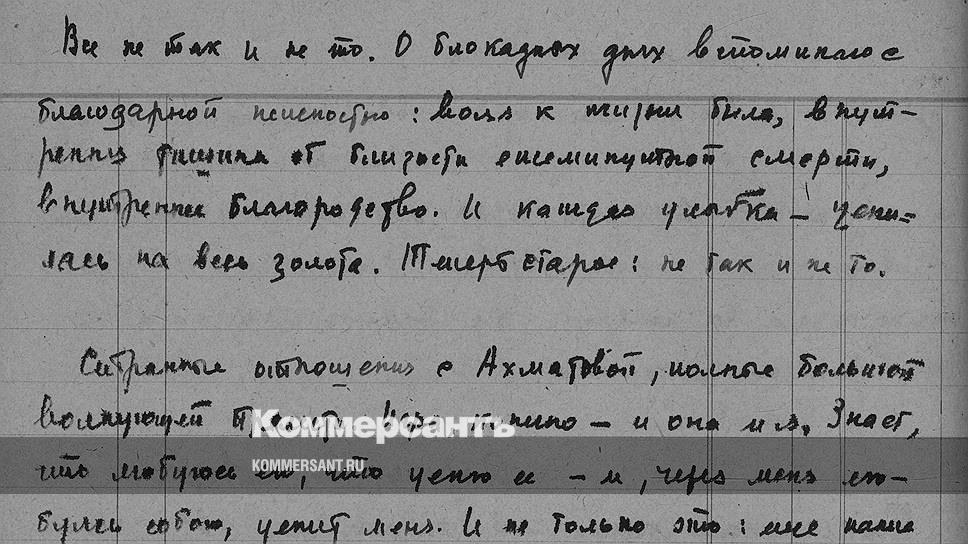 Все не так и не то. О блокадных днях вспоминаю с
благодарной нежностью: воля к жизни была, внут-
ренняя тишина от близости ежеминутной смерти,
внутреннее благородство. И каждая улыбка – цени-
лась на весь золота. Теперь старое: не так и не то.
Странные отношения с Ахматовой, полные большой
волнующей – и она и я. Знает,
Коммерсантъ
что любуюсь ею, что ценю ее – и, через меня лю-
KOMMERSANT.RU
буясь собою, ценит меня. И не только это: еще